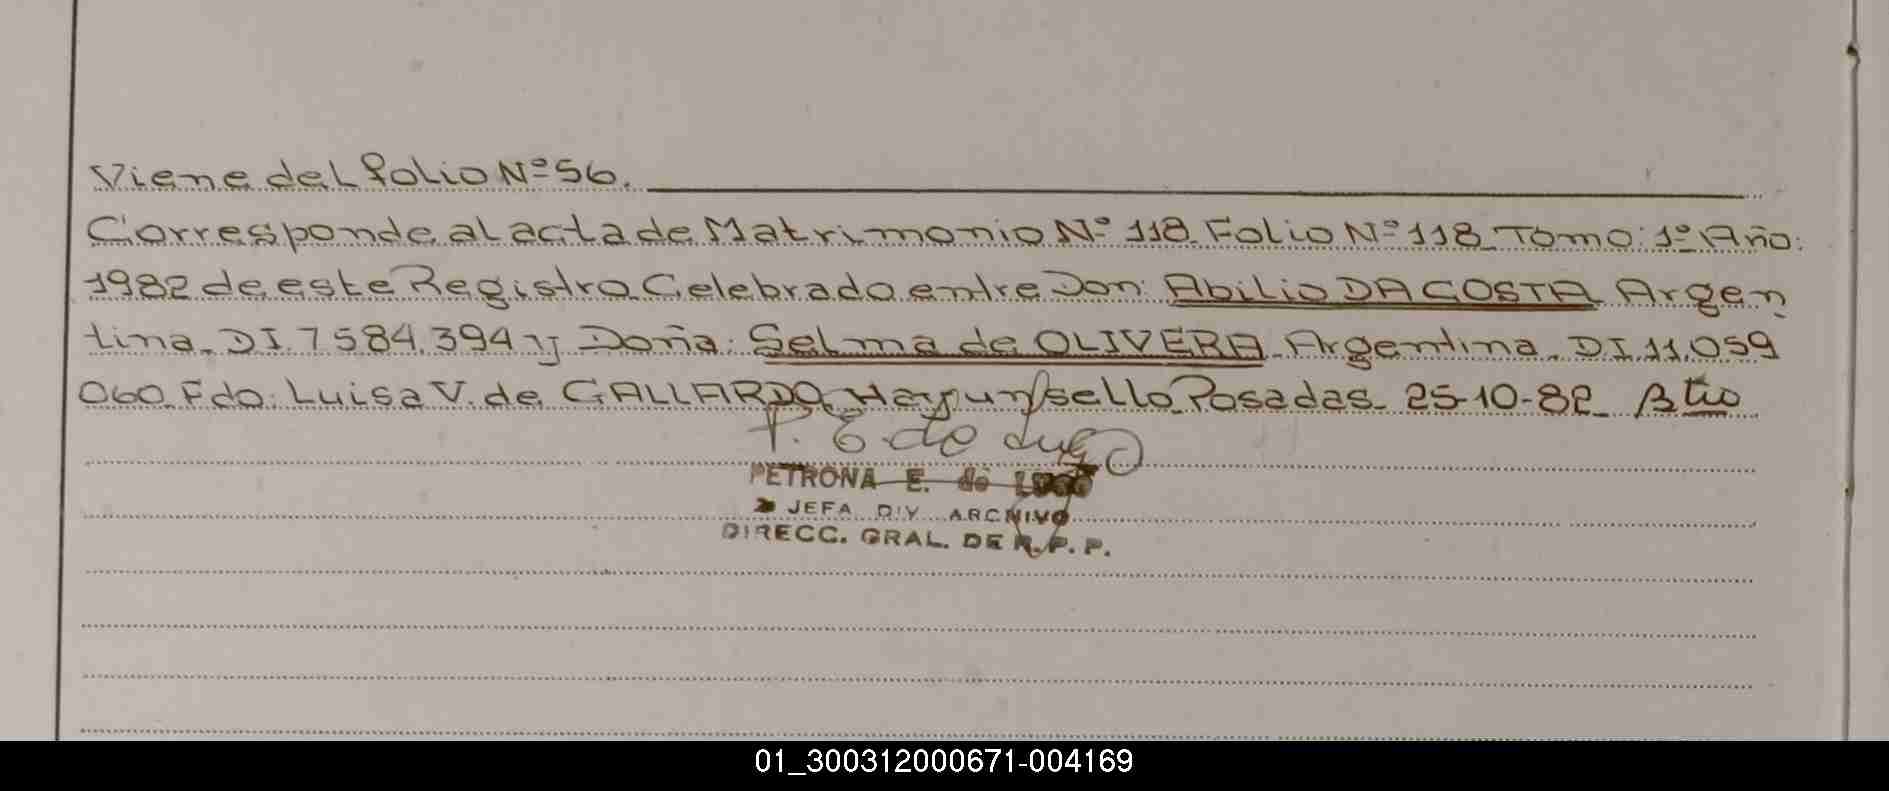 Viene del folio Nº 56.
Corresponde al acta de Matrimonio Nº 118. Folio Nº 118. Tomo: 1º Año:
1982 de este Registro. Celebrado entre Don: Abilio DA COSTA. Argen
tina. DI. 7584.394 y Doña: Selma de OLIVERA. Argentina. DI. 11.059
060. Fdo: Luisa V. de GALLARDO. Hay un/sello. Posadas. 25-10-82.
P. E de Lugo
PETRONA E. de LUGO
JEFA DIV ARCHIVO
DIRECC. GRAL. DE R. P. P.
01_300312000671-004169